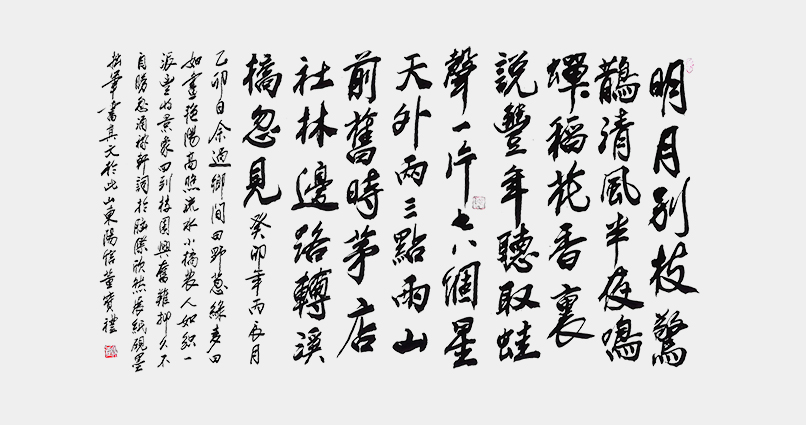 明月別枝驚
鵲清風半夜鳴
蟬稻花香裏
說豐年聽取蛙
聲一片七八個星
天外兩三點雨山
前舊時茅店
社林邊路轉溪
橋忽見 癸卯年丙辰月
乙卯日余過鄉間田野蔥綠麥田
如畫艷陽高照流水小橋農人如織一
派豐收景象回到校園興奮難抑久不
自勝忽涌稼軒詞於腦際欣然展紙硯墨
拙筆書其文於此山東陽信董寶禮